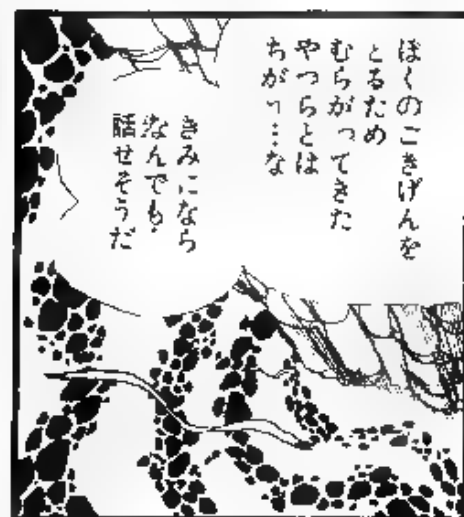 ぼくのごきげんを
とるため
むらがってきた
やつらとは
ちがい…な
きみになら
なんでも
話せそうだ